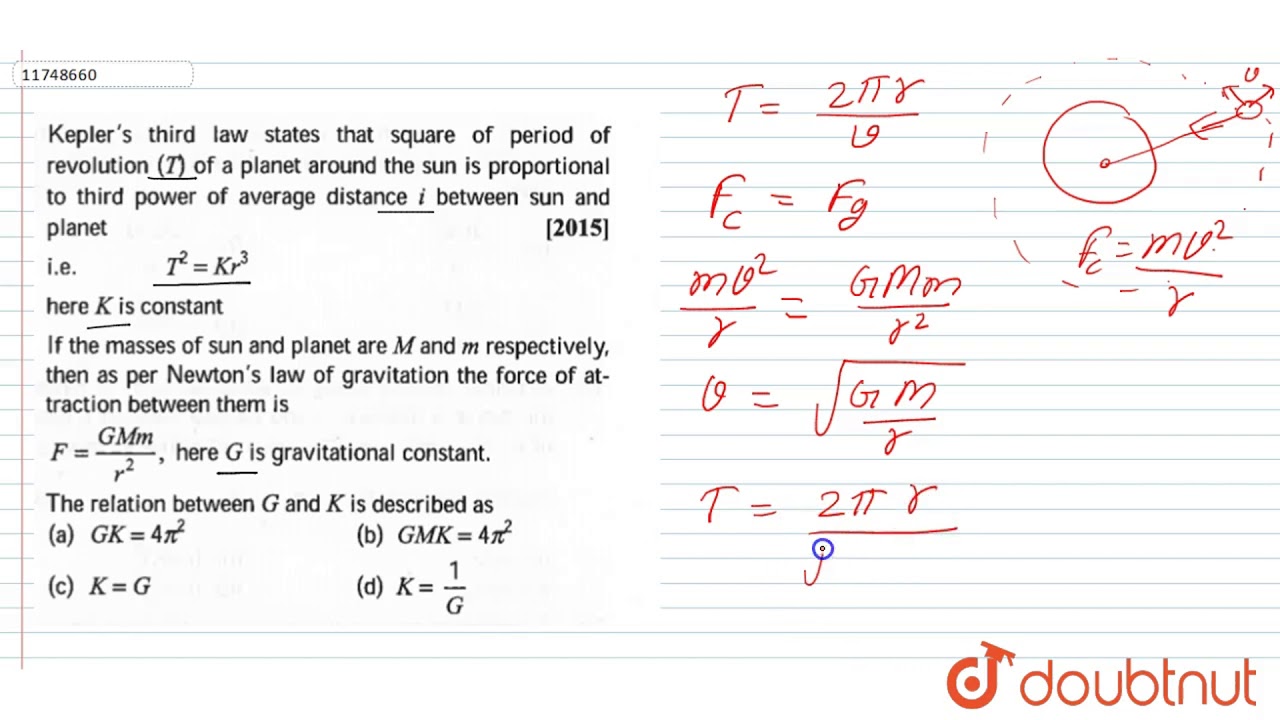 11748660
Kepler's third law states that square of period of
revolution (T) of a planet around the sun is proportional
to third power of average distance i between sun and
planet [2015]
i.e. T² = Kr³
here K is constant
If the masses of sun and planet are M and m respectively,
then as per Newton's law of gravitation the force of at-
traction between them is
F = GMm/r², here G is gravitational constant.
The relation between G and K is described as
(a) GK = 4π² (b) GMK = 4π²
(c) K = G (d) K = 1/G
T = 2πr/v
Fc = Fg
mv²/r = GMm/r²
v = √(GM/r)
T = 2πr/√
v
Fc = mv²/r
doubtnut